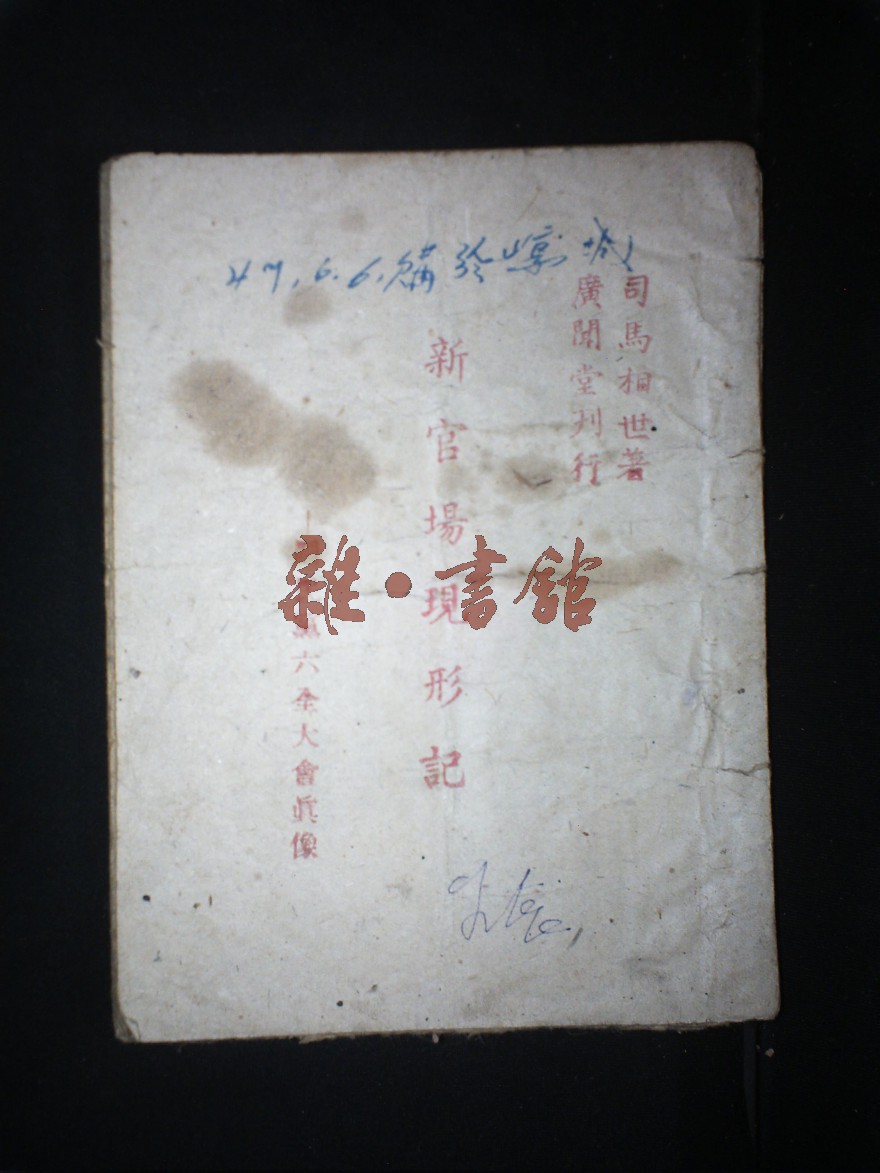 47.6.6.購於
司馬相世著
廣聞堂刋行
新官場現形記
六全大會眞像
雜·書館